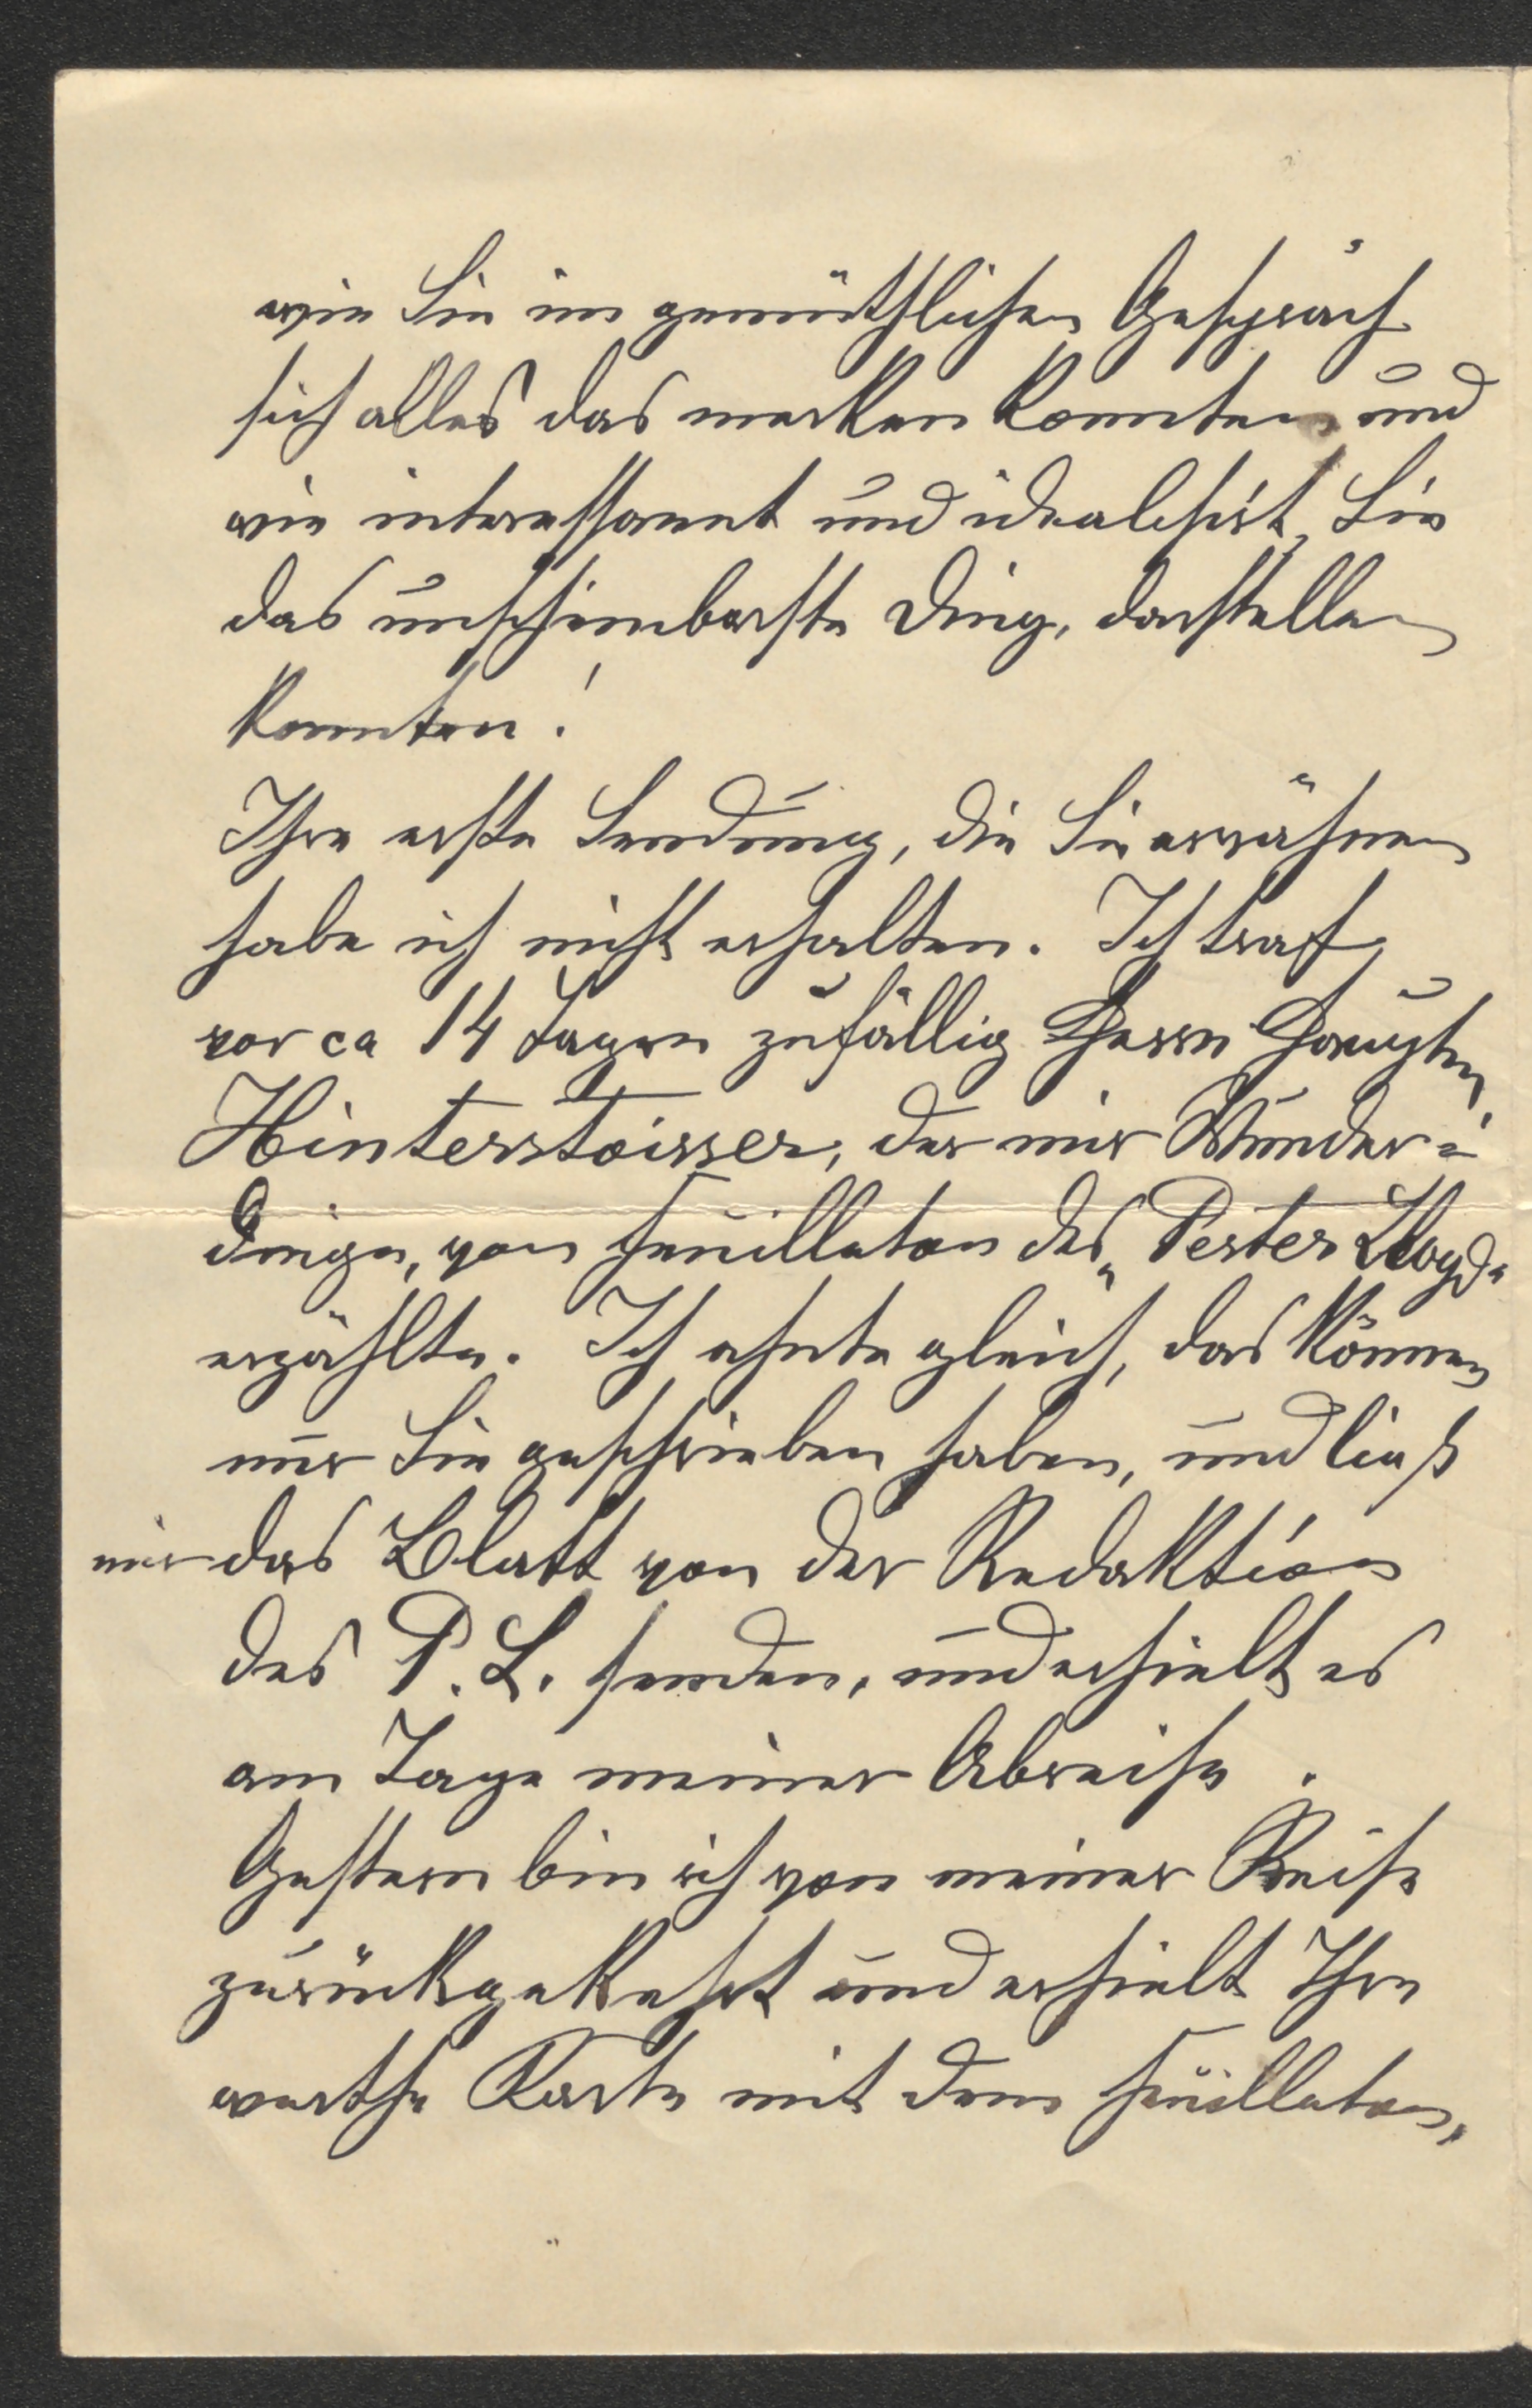 wie Sie im gemüthlichen Gespräch
sich alles das merken konnten und
wie interessant und idealisirt, Sie
das unscheinbarste Ding, darstellen
konnten!
Ihre erste Sendung, die Sie erwähnen
habe ich nicht erhalten. Ich traf
vor ca 14 Tagen zufällig Herrn Hauptm
Hinterstoisser, der mir Wunder=
dinge, vom Feuilleton des „Pester Lloyd"
erzählte. Ich ahnte gleich, das können
nur Sie geschrieben haben, und ließ
mir das Blatt von der Redaktion
des P. L. senden, und erhielt es
am Tage meiner Abreise.
Gestern bin ich von meiner Reise
zurückgekehrt und erhielt Ihre
werthe Karte mit dem Feuilleton,